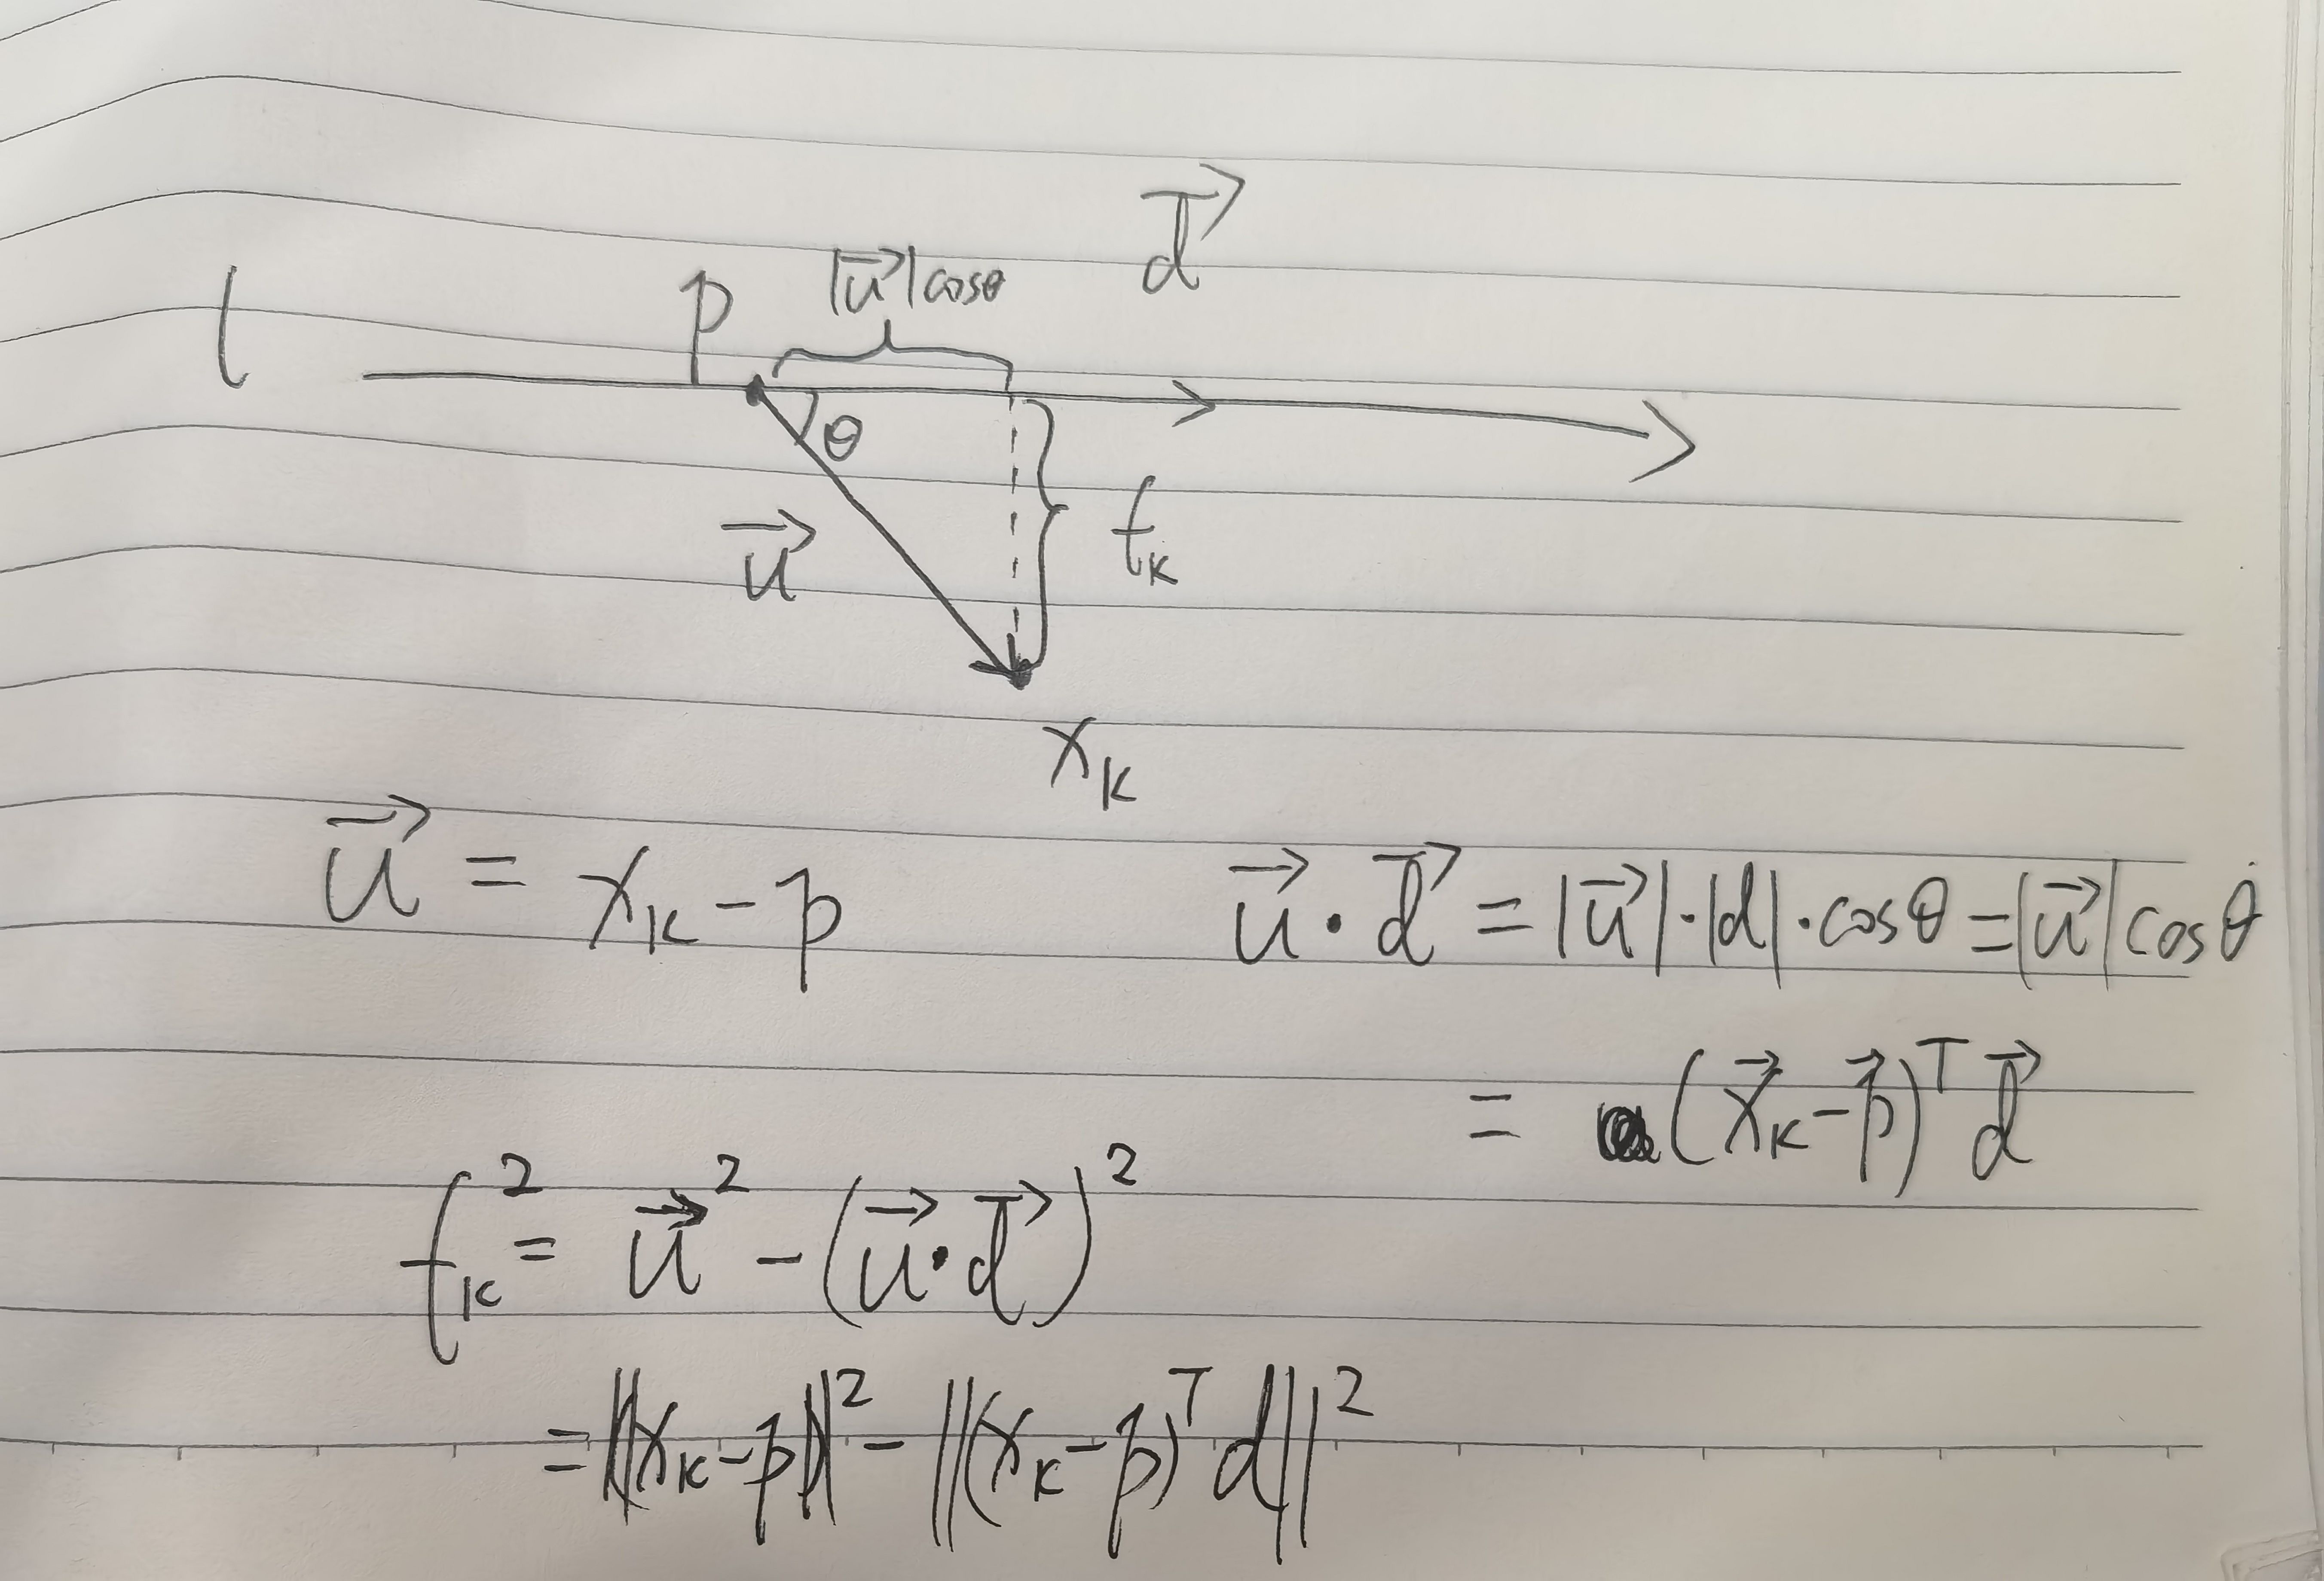 d⃗
l p |u⃗|cosθ
θ
u⃗ f_k
x_k
u⃗ = x_k - p u⃗ · d⃗ = |u⃗| · |d| · cosθ = |u⃗| cosθ
= (x⃗_k - p⃗)^T d⃗
f_k² = u⃗² - (u⃗ · d⃗)²
= ||x_k - p||² - ||(x_k - p)^T d||²